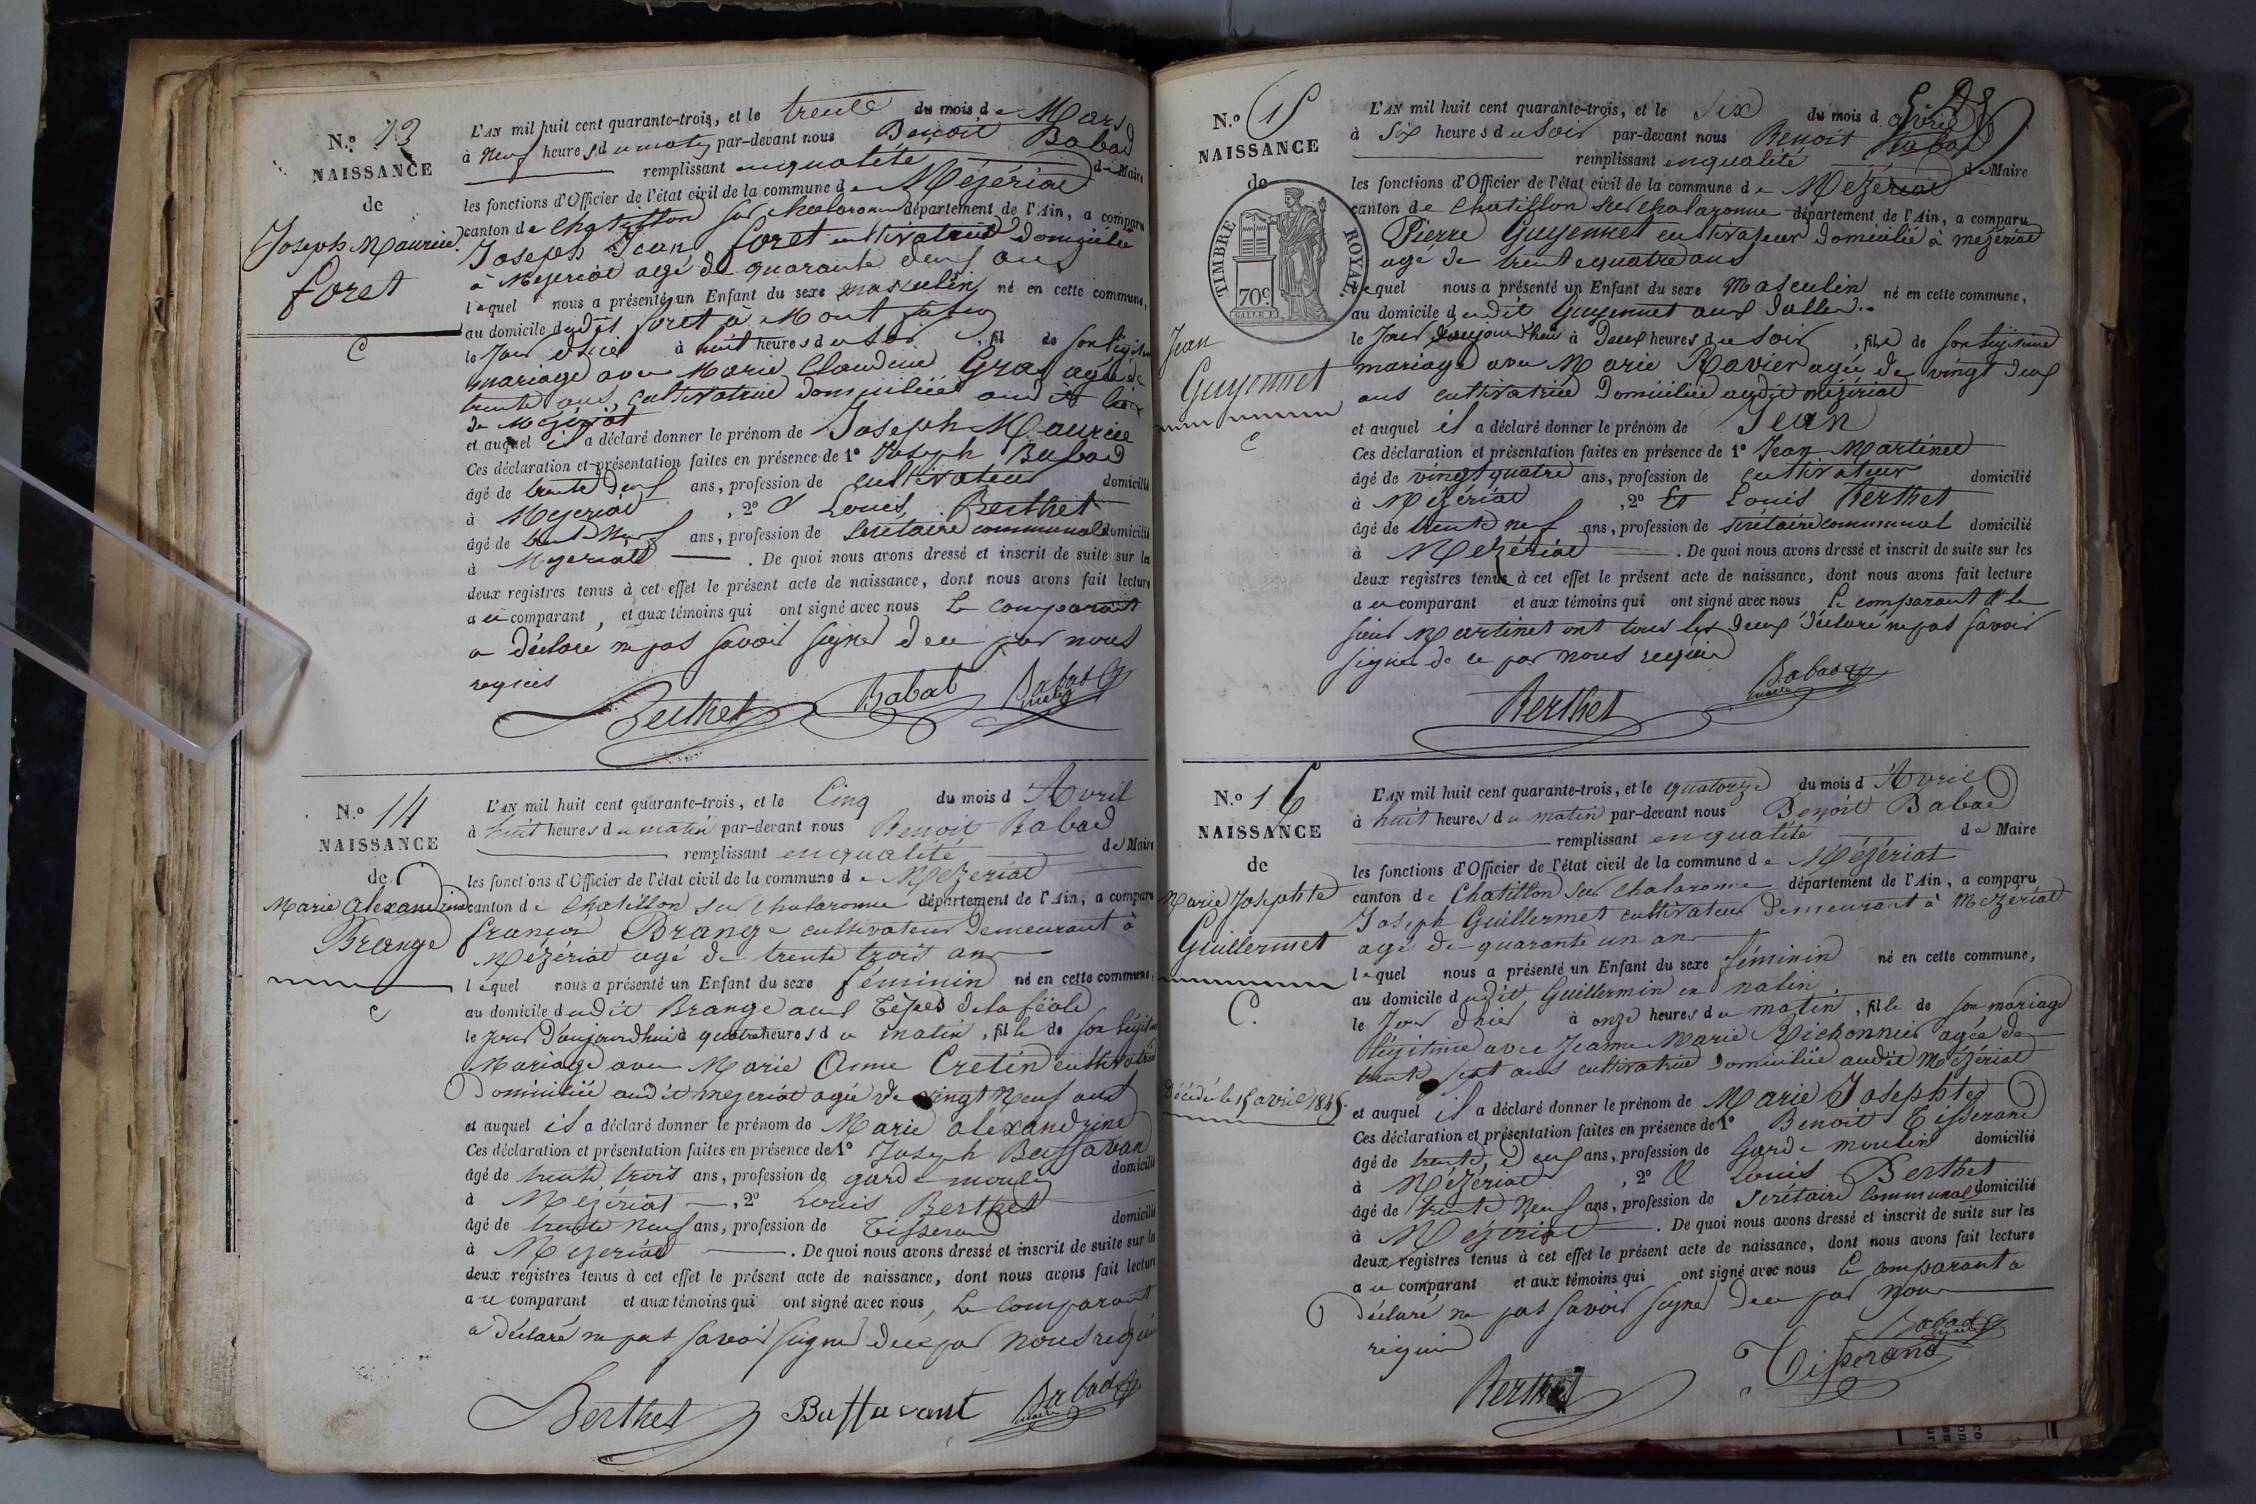 N.o 13
NAISSANCE
de
Joseph Maurice
foret
C
L'AN mil huit cent quarante-trois, et le trente du mois de Mars
à neuf heures du matin par-devant nous Benoit Babad
remplissant en qualité de Maire
les fonctions d'Officier de l'état civil de la commune de Mézériat
canton de Chatillon sur chalaronne département de l'Ain, a comparu
Joseph Jean foret cultivateur domicilié
à Mézériat agé de quarante deux ans
lequel nous a présenté un Enfant du sexe masculin né en cette commune,
au domicile dudit foret à Mont
le jour d'hier à huit heures du soir, fil de son légitime
mariage avec Marie Claudine Gras agée de
trente ans, cultivatrice domiciliée audit lieu
de Mézériat
et auquel il a déclaré donner le prénom de Joseph Maurice
Ces déclaration et présentation faites en présence de 1° Joseph Babad
âgé de trente deux ans, profession de cultivateur domicilié
à Mézériat, 2° & Louis Berthet
âgé de trente neuf ans, profession de secrétaire communal domicilié
à Mézériat. De quoi nous avons dressé et inscrit de suite sur les
deux registres tenus à cet effet le présent acte de naissance, dont nous avons fait lecture
au comparant, et aux témoins qui ont signé avec nous Le comparant
a déclaré ne pas savoir signer de ce par nous
requis
Berthet Babad Babad maire
N.o 14
NAISSANCE
de
Marie alexandrine
Brange
c
L'AN mil huit cent quarante-trois, et le Cinq du mois d Avril
à huit heures du matin par-devant nous Benoit Babad
remplissant en qualité de Maire
les fonctions d'Officier de l'état civil de la commune de Mézériat
canton de Chatillon sur chalaronne département de l'Ain, a comparu
françois Brange cultivateur demeurant à
Mézériat agé de trente trois ans
lequel nous a présenté un Enfant du sexe féminin né en cette commune,
au domicile dudit Brange aux
le jour d'aujourdhui à quatre heures du matin, fille de son légitime
Mariage avec Marie Anne Cretin cultivatrice
Domiciliée audit mezeriat agée de vingt neuf ans
et auquel il a déclaré donner le prénom de Marie alexandrine
Ces déclaration et présentation faites en présence de 1° Joseph Buffavan
âgé de trente trois ans, profession de garde moulin domicilié
à Mézériat, 2° Louis Berthet
âgé de trente neuf ans, profession de Tisserand domicilié
à Mézériat. De quoi nous avons dressé et inscrit de suite sur les
deux registres tenus à cet effet le présent acte de naissance, dont nous avons fait lecture
au comparant et aux témoins qui ont signé avec nous, Le comparant
a déclaré ne pas savoir signer de ce par nous requis
Berthet Buffavant Babad maire
N.o 15
NAISSANCE
de
TIMBRE ROYAL.
70c
Jean
Guyennet
c
L'AN mil huit cent quarante-trois, et le Six du mois d avril
à Six heures du soir par-devant nous Benoit Babad
remplissant en qualité de Maire
les fonctions d'Officier de l'état civil de la commune de Mezériat
canton de Chatillon sur chalaronne département de l'Ain, a comparu
Pierre Guyennet cultivateur domicilié à mézériat
agé de trente quatre ans
lequel nous a présenté un Enfant du sexe Masculin né en cette commune,
au domicile dudit Guyennet aux
le Jour daujourdhui à Deux heures du soir, fils de son légitime
mariage avec Marie Ravier agée de vingt deux
ans cultivatrice Domiciliée audit mézériat
et auquel il a déclaré donner le prénom de Jean
Ces déclaration et présentation faites en présence de 1° Jean Martinet
âgé de vingt quatre ans, profession de cultivateur domicilié
à Mézériat, 2° Et Louis Berthet
âgé de trente neuf ans, profession de secrétaire communal domicilié
à Mézériat. De quoi nous avons dressé et inscrit de suite sur les
deux registres tenus à cet effet le présent acte de naissance, dont nous avons fait lecture
au comparant et aux témoins qui ont signé avec nous le comparant & le
sieur Martinet ont tous les deux déclaré ne pas savoir
signer de ce par nous requis
Berthet Babad maire
N.o 16
NAISSANCE
de
Marie Josephte
Guillermet
C.
Décédé le 15 avril 1845.
L'AN mil huit cent quarante-trois, et le quatorze du mois d Avril
à huit heures du matin par-devant nous Benoit Babad
remplissant en qualité de Maire
les fonctions d'Officier de l'état civil de la commune de Mézériat
canton de Chatillon sur chalaronne département de l'Ain, a comparu
Joseph Guillermet cultivateur Demeurant à Mézériat
agé de quarante un ans
lequel nous a présenté un Enfant du sexe féminin né en cette commune,
au domicile dudit Guillermin en
le Jour d'hier à onze heures du matin, fille de son mariage
légitime avec Jeanne Marie Richonnier agée de
trente sept ans cultivatrice Domiciliée audit Mézériat
et auquel il a déclaré donner le prénom de Marie Josephte
Ces déclaration et présentation faites en présence de 1° Benoit Tisserand
âgé de trente deux ans, profession de Garde moulin domicilié
à Mézériat, 2° & Louis Berthet
âgé de trente neuf ans, profession de Secrétaire Communal domicilié
à Mézériat. De quoi nous avons dressé et inscrit de suite sur les
deux registres tenus à cet effet le présent acte de naissance, dont nous avons fait lecture
au comparant et aux témoins qui ont signé avec nous le comparant a
déclaré ne pas savoir signer de ce par nous
requis
Berthet Tisserand Babad maire